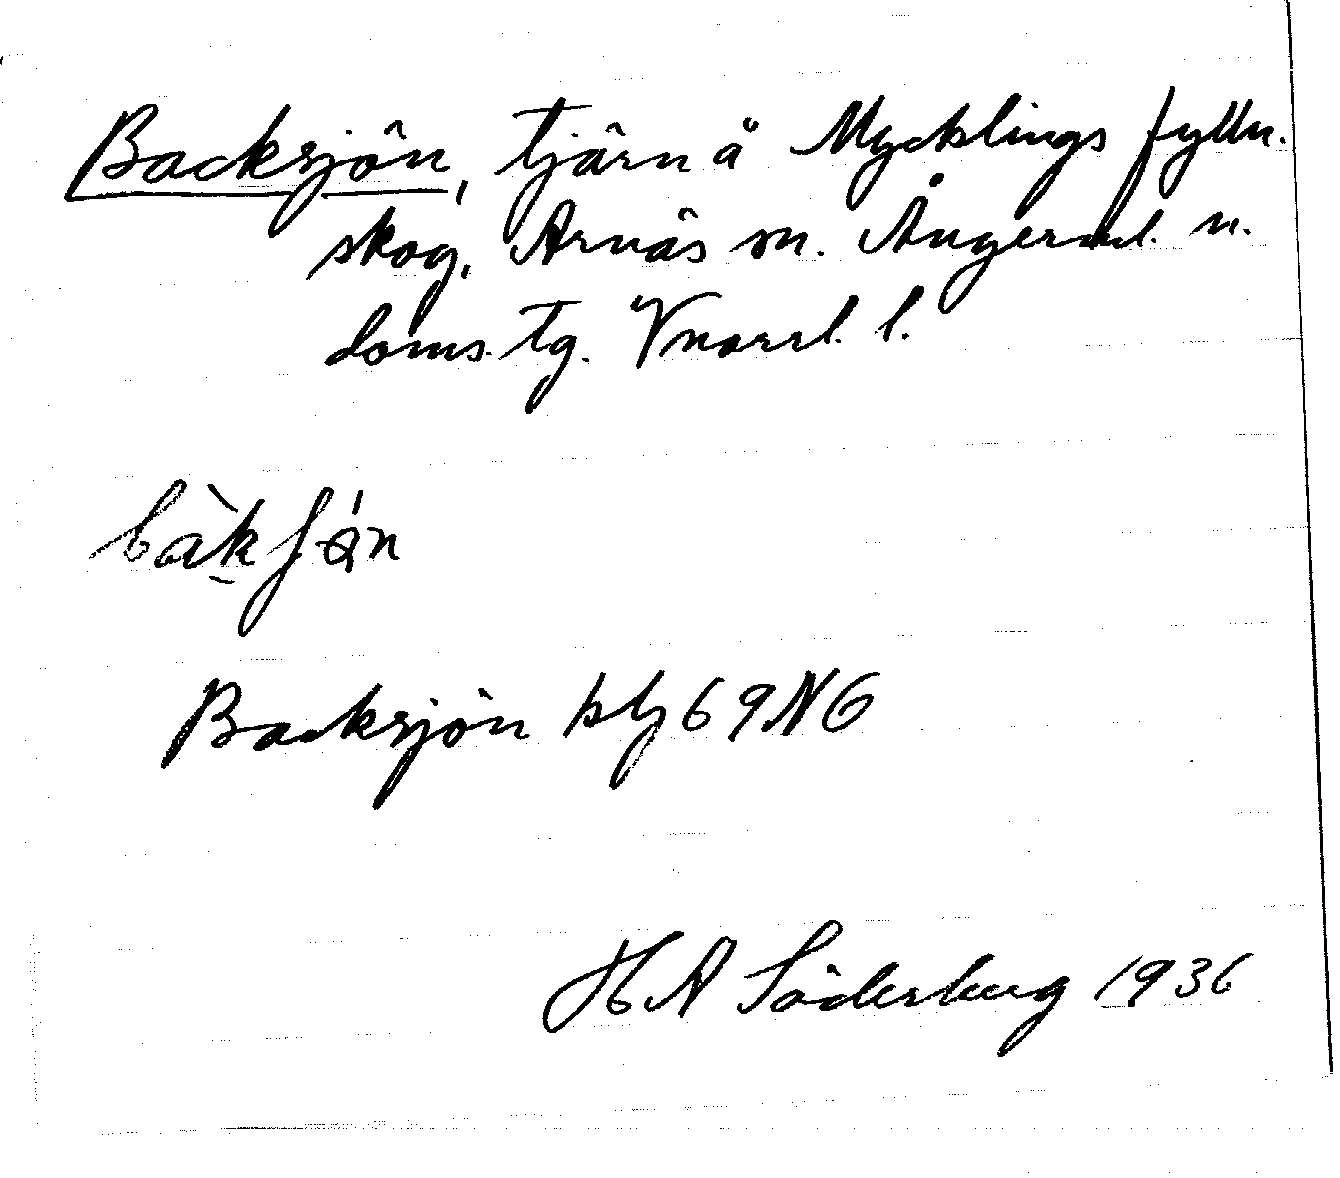 Backsjön, tjärn å Mycklings fylln.
skog, Arnäs sn. Ångerml. n.
doms. tg. Vnorrl. l.
Backsjön kbl 69 NG
H A Söderberg 1936